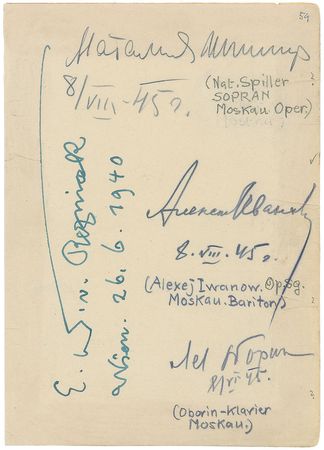 59
Наталия Шпиллер
8/VIII-45 г.
(Nat. Spiller
SOPRAN
Moskau Oper.)
Алексей Иванов
8.VIII.45 г.
(Alexej Iwanow. Op.Sg.
Moskau. Bariton)
Лев Оборин
8/VIII 45.
(Oborin-Klavier
Moskau.)
E. N. v. Reznicek
Wien. 26.6.1940